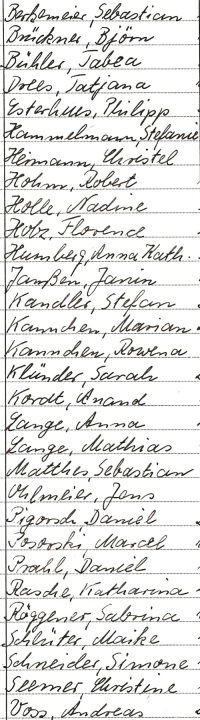 Berkemeier, Sebastian
Brückner, Björn
Bühler, Tabea
Drees, Tatjana
Esterhues, Philipp
Hammelmann, Stefanie
Heimann, Christel
Hohm, Robert
Holle, Nadine
Holz, Florence
Humberg, Anna Kath.
Janßen, Janin
Kandler, Stefan
Kannchen, Marian
Kannchen, Rowena
Klünder, Sarah
Kordt, Anand
Lange, Anna
Lange, Mathias
Matthes, Sebastian
Ohlmeier, Jens
Pigorsch, Daniel
Posorski, Marcel
Prahl, Daniel
Rasche, Katharina
Röggener, Sabrina
Schlüter, Maike
Schneider, Simone
Seemer, Christine
Voss, Andreas